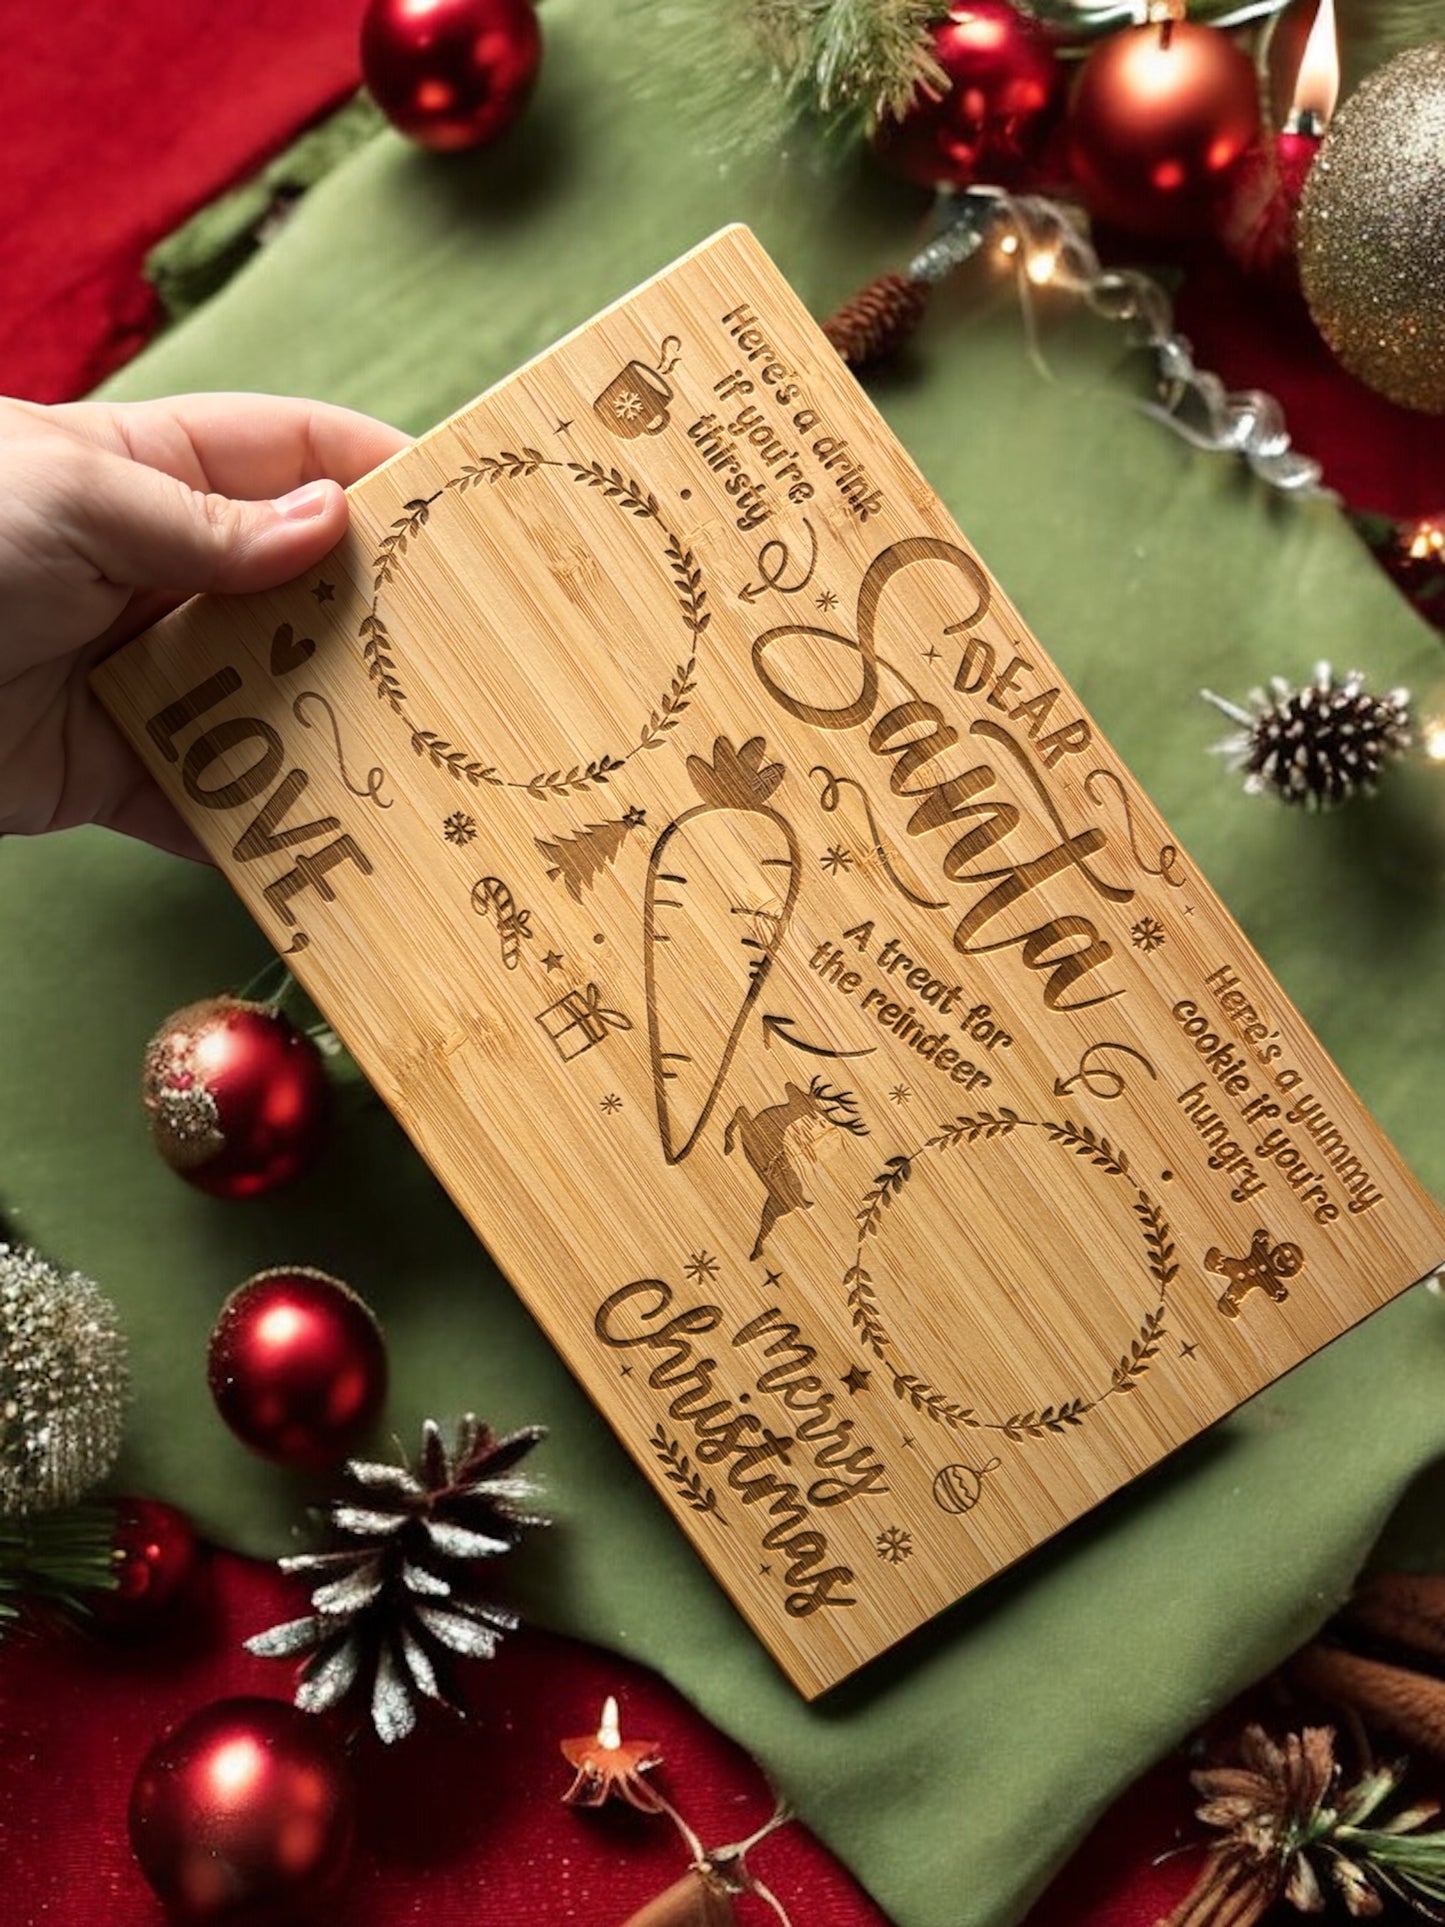 DEAR
Santa
Here's a drink
if you're
thirsty
Here's a yummy
cookie if you're
hungry
A treat for
the reindeer
LOVE,
Merry
Christmas